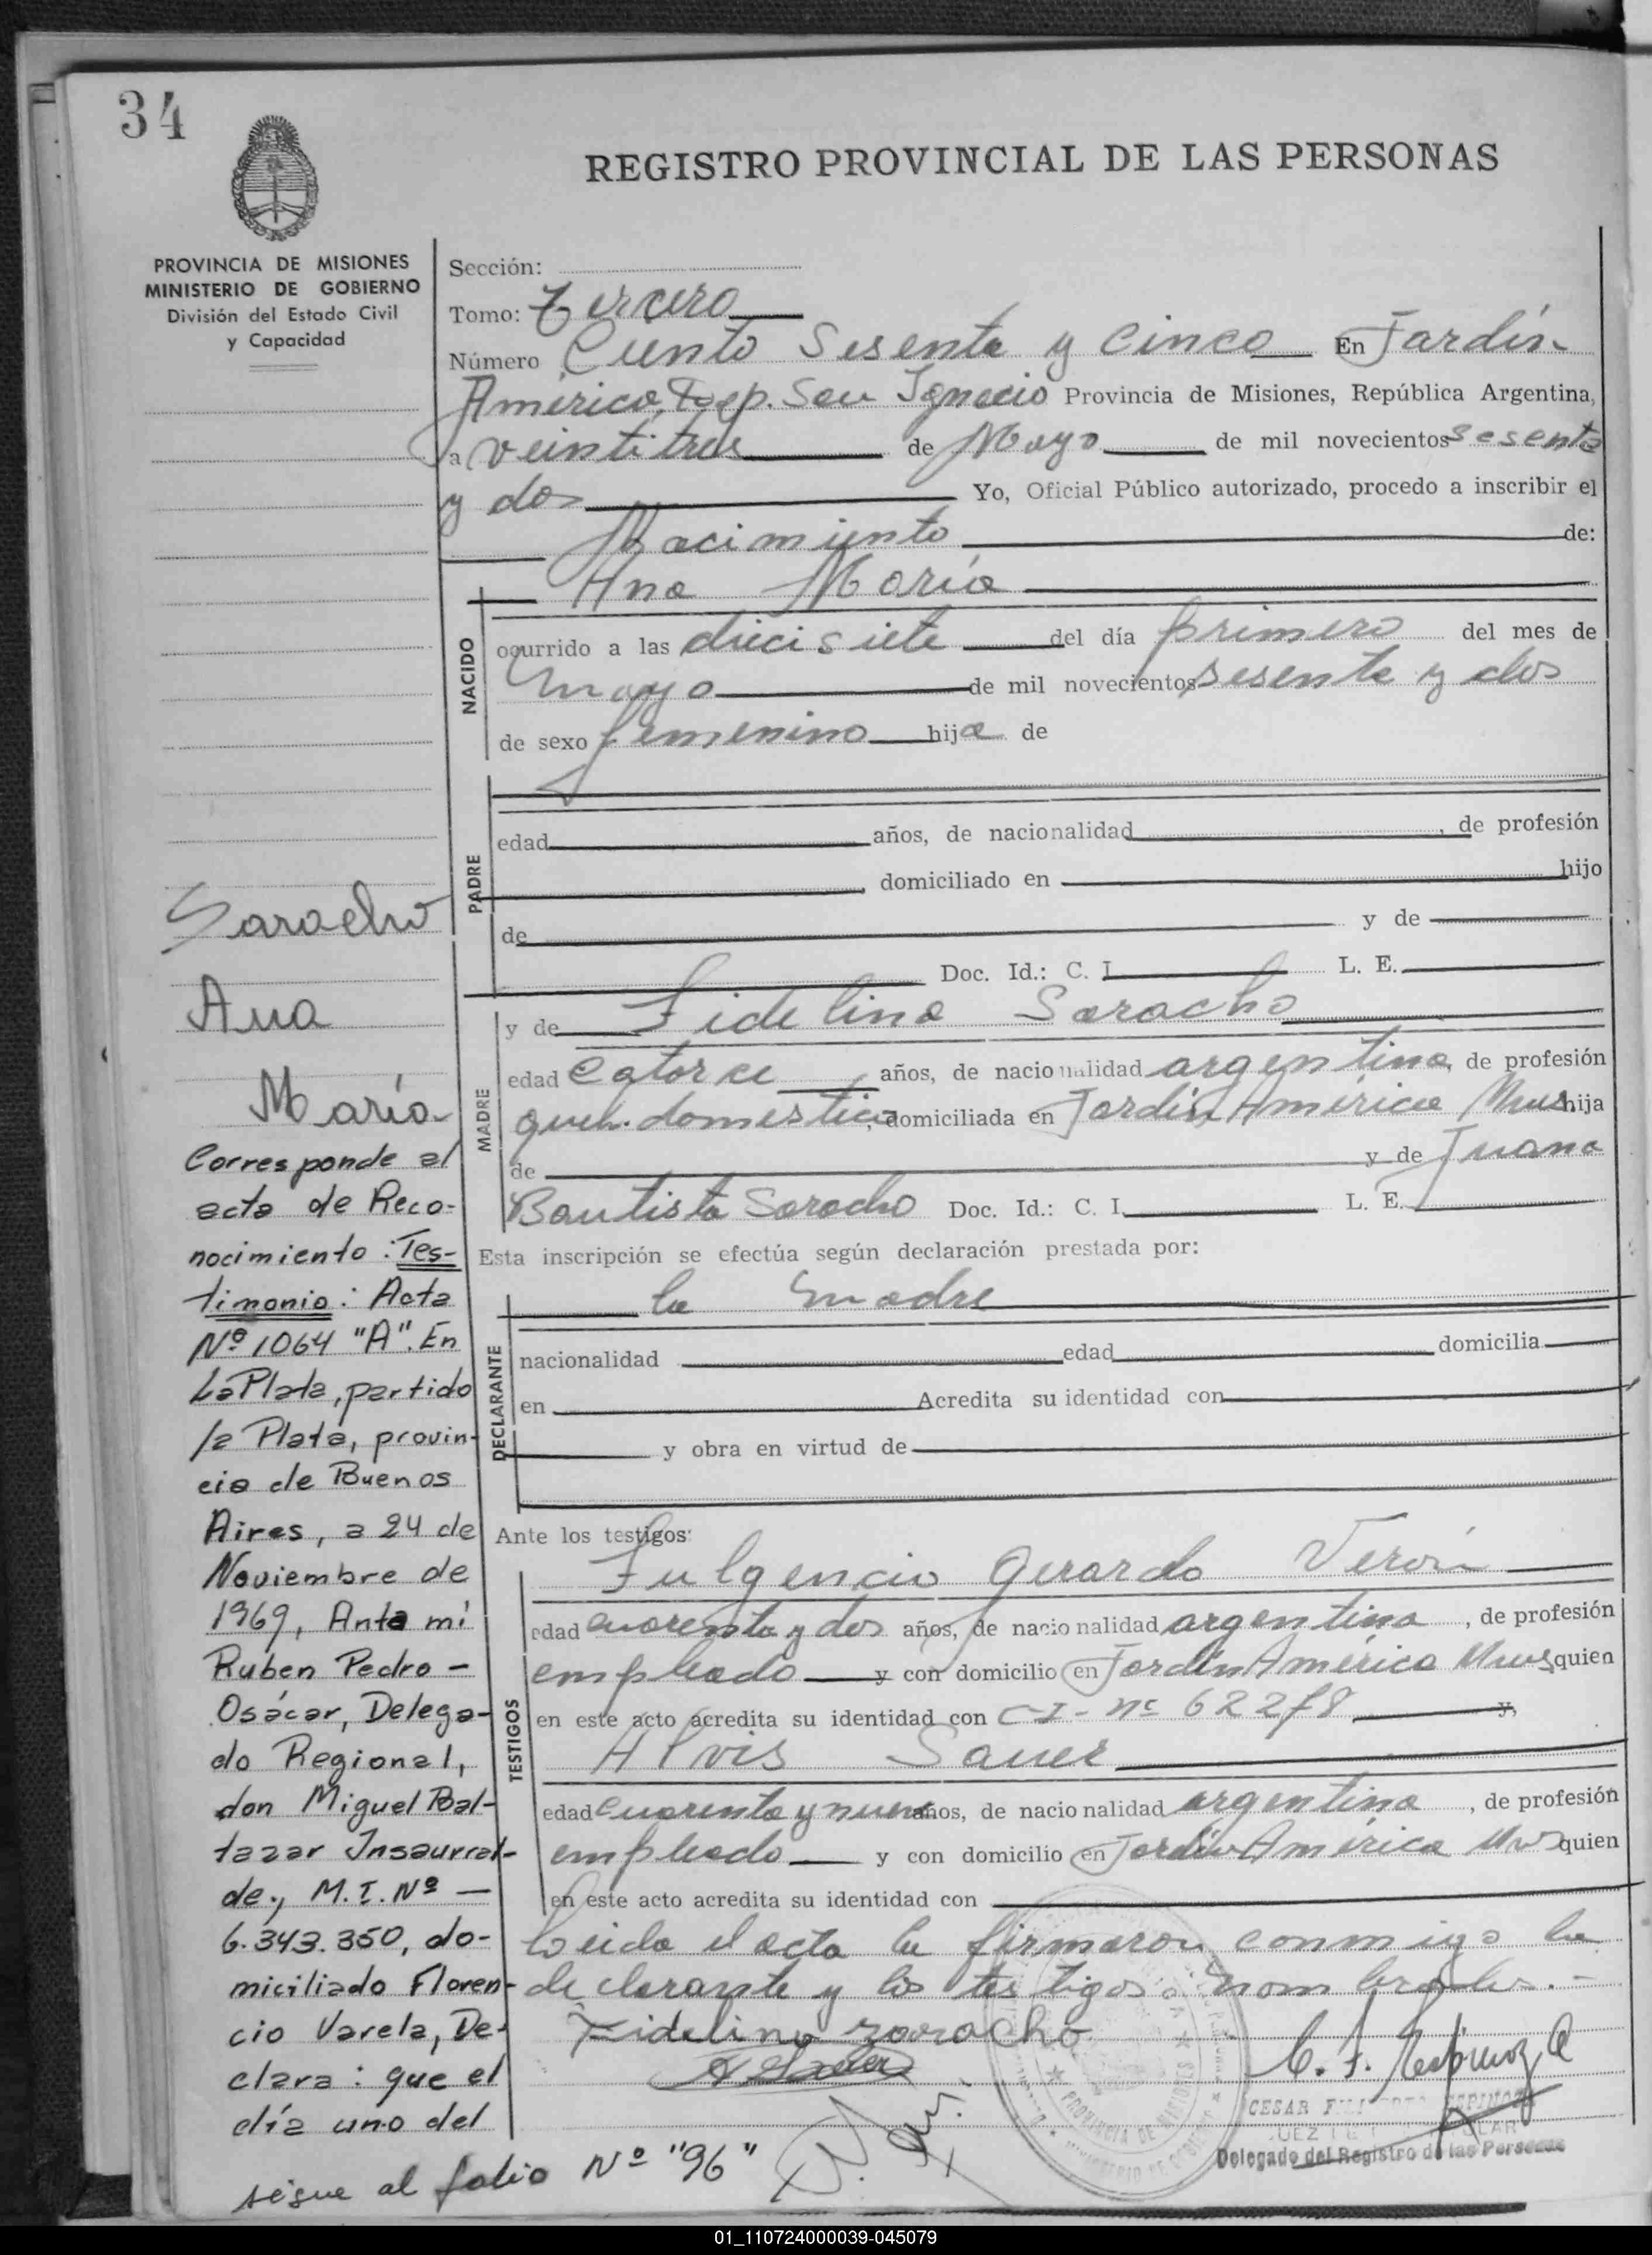 34
REGISTRO PROVINCIAL DE LAS PERSONAS
PROVINCIA DE MISIONES
MINISTERIO DE GOBIERNO
División del Estado Civil
y Capacidad
Sección:
Tomo: Tercero
Número Ciento Sesenta y Cinco En Jardín
América, Dep. San Ignacio Provincia de Misiones, República Argentina,
a veintitres de Mayo de mil novecientos sesenta
y dos Yo, Oficial Público autorizado, procedo a inscribir el
Nacimiento de:
NACIDO
Ana María
ocurrido a las diecisiete del día primero del mes de
mayo de mil novecientos sesenta y dos
de sexo femenino hija de
PADRE
edad años, de nacionalidad , de profesión
, domiciliado en hijo
de y de
Doc. Id.: C. I. L. E.
MADRE
y de Fidelina Saracho
edad Catorce años, de nacionalidad argentina, de profesión
queh. domestico, domiciliada en Jardín América Mnes hija
de y de Juana
Bautista Saracho Doc. Id.: C. I. L. E.
Esta inscripción se efectúa según declaración prestada por:
DECLARANTE
la madre
nacionalidad edad domicilia
en Acredita su identidad con
y obra en virtud de
Ante los testigos:
TESTIGOS
Fulgencio Gerardo Verón
edad cuarenta y dos años, de nacionalidad argentina, de profesión
empleado y con domicilio en Jardín América Mnes quien
en este acto acredita su identidad con C-I- Nº y,
Alvis Sauer
edad cuarenta y nueve años, de nacionalidad argentina, de profesión
empleado y con domicilio en Jardín América Mns quien
en este acto acredita su identidad con
Leida el acta la firmaron conmigo la
declarante y los testigos nombrados.-
Fidelina zaracho
C. F. Espinoza
CESAR ESPINOZA
JUEZ
Delegado del Registro de las Personas
PROVINCIA DE MISIONES
MINISTERIO DE GOBIERNO
Saracho
Ana
María
Corresponde al
acta de Reco-
nocimiento: Tes-
timonio: Acta
Nº 1064 "A". En
La Plata, partido
la Plata, provin-
cia de Buenos
Aires, a 24 de
Noviembre de
1969, Ante mi
Ruben Pedro -
Osácar, Delega-
do Regional,
don Miguel Bal-
tazar Insaurral-
de, M.I. Nº -
6.343.350, do-
miciliado Floren-
cio Varela, De-
clara: que el
día uno del
sigue al folio Nº "96"
01_110724000039-045079